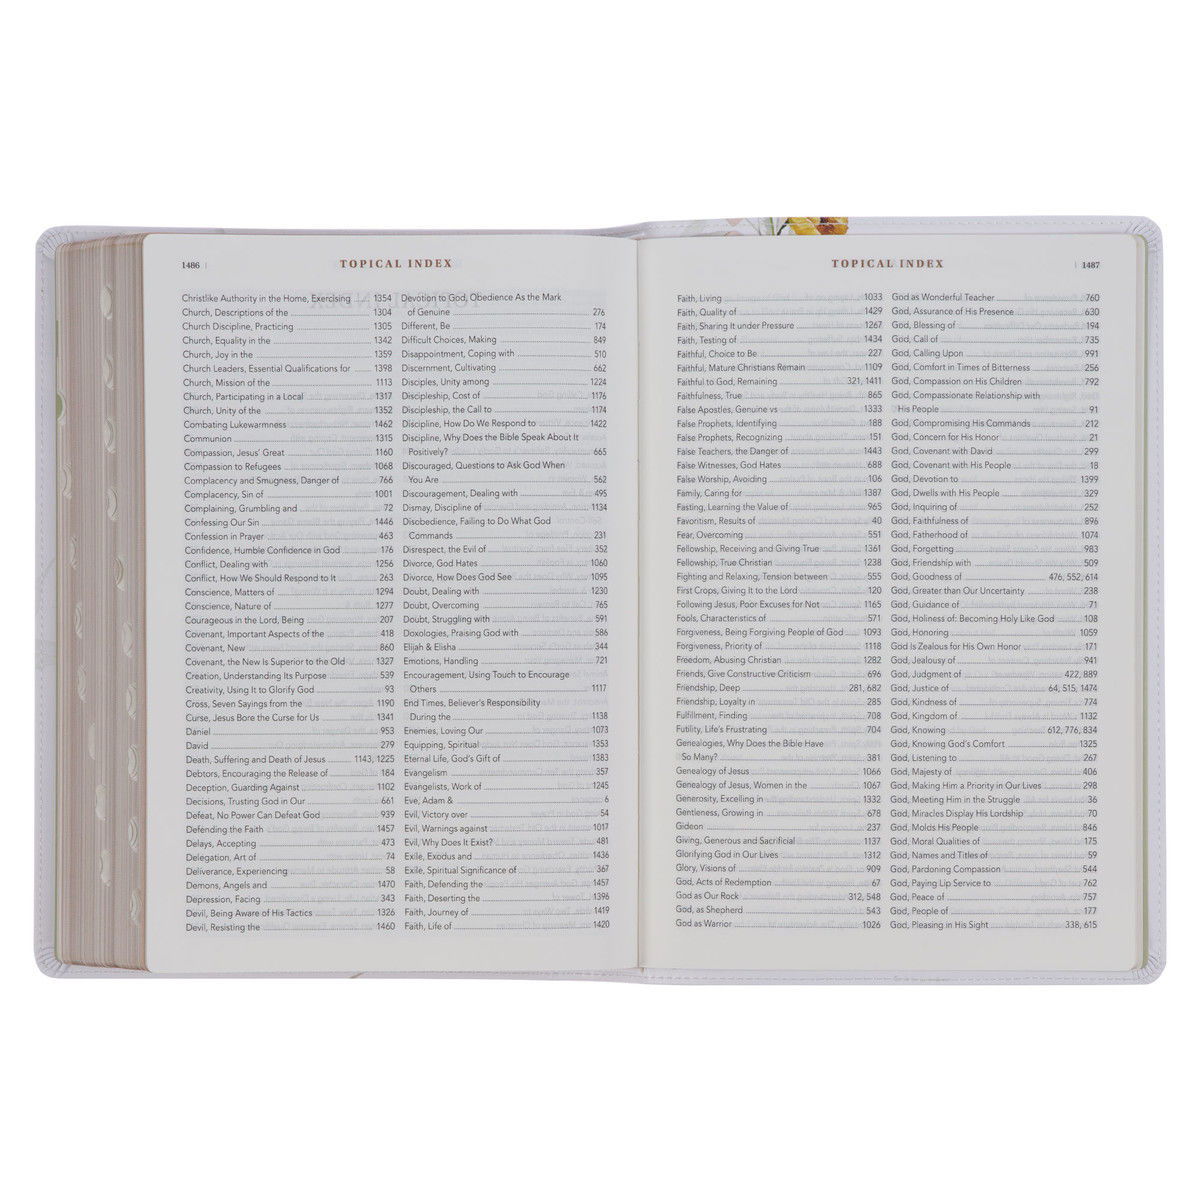 1486 |
TOPICAL INDEX
Christlike Authority in the Home, Exercising 1354
Church, Descriptions of the 1304
Church Discipline, Practicing 1305
Church, Equality in the 1342
Church, Joy in the 1359
Church Leaders, Essential Qualifications for 1398
Church, Mission of the 1113
Church, Participating in a Local 1317
Church, Unity of the 1352
Combating Lukewarmness 1462
Communion 1315
Compassion, Jesus' Great 1160
Compassion to Refugees 1068
Complacency and Smugness, Danger of 766
Complacency, Sin of 1001
Complaining, Grumbling and 72
Confessing Our Sin 1446
Confession in Prayer 463
Confidence, Humble Confidence in God 176
Conflict, Dealing with 1256
Conflict, How We Should Respond to It 263
Conscience, Matters of 1294
Conscience, Nature of 1277
Courageous in the Lord, Being 207
Covenant, Important Aspects of the 418
Covenant, New 860
Covenant, the New Is Superior to the Old 1327
Creation, Understanding Its Purpose 539
Creativity, Using It to Glorify God 93
Cross, Seven Sayings from the 1190
Curse, Jesus Bore the Curse for Us 1341
Daniel 953
David 279
Death, Suffering and Death of Jesus 1143, 1225
Debtors, Encouraging the Release of 184
Deception, Guarding Against 1102
Decisions, Trusting God in Our 661
Defeat, No Power Can Defeat God 939
Defending the Faith 1457
Delays, Accepting 473
Delegation, Art of 74
Deliverance, Experiencing 58
Demons, Angels and 1470
Depression, Facing 343
Devil, Being Aware of His Tactics 1326
Devil, Resisting the 1460
Devotion to God, Obedience As the Mark
of Genuine 276
Different, Be 174
Difficult Choices, Making 849
Disappointment, Coping with 510
Discernment, Cultivating 662
Disciples, Unity among 1224
Discipleship, Cost of 1176
Discipleship, the Call to 1174
Discipline, How Do We Respond to 1422
Discipline, Why Does the Bible Speak About It
Positively? 665
Discouraged, Questions to Ask God When
You Are 562
Discouragement, Dealing with 495
Dismay, Discipline of 1134
Disobedience, Failing to Do What God
Commands 231
Disrespect, the Evil of 352
Divorce, God Hates 1060
Divorce, How Does God See 1095
Doubt, Dealing with 1230
Doubt, Overcoming 765
Doubt, Struggling with 591
Doxologies, Praising God with 586
Elijah & Elisha 344
Emotions, Handling 721
Encouragement, Using Touch to Encourage
Others 1117
End Times, Believer's Responsibility
During the 1138
Enemies, Loving Our 1073
Equipping, Spiritual 1353
Eternal Life, God's Gift of 1383
Evangelism 357
Evangelists, Work of 1245
Eve, Adam & 6
Evil, Victory over 54
Evil, Warnings against 1017
Evil, Why Does It Exist? 481
Exile, Exodus and 1436
Exile, Spiritual Significance of 367
Faith, Defending the 1457
Faith, Deserting the 1396
Faith, Journey of 1419
Faith, Life of 1420
TOPICAL INDEX
| 1487
Faith, Living 1033
Faith, Quality of 1429
Faith, Sharing It under Pressure 1267
Faith, Testing of 1434
Faithful, Choice to Be 227
Faithful, Mature Christians Remain 1109
Faithful to God, Remaining 321, 1411
Faithfulness, True 865
False Apostles, Genuine vs 1333
False Prophets, Identifying 188
False Prophets, Recognizing 151
False Teachers, the Danger of 1443
False Witnesses, God Hates 688
False Worship, Avoiding 106
Family, Caring for 1387
Fasting, Learning the Value of 965
Favoritism, Results of 40
Fear, Overcoming 551
Fellowship, Receiving and Giving True 1361
Fellowship, True Christian 1238
Fighting and Relaxing, Tension between 555
First Crops, Giving It to the Lord 120
Following Jesus, Poor Excuses for Not 1165
Fools, Characteristics of 571
Forgiveness, Being Forgiving People of God 1093
Forgiveness, Priority of 1118
Freedom, Abusing Christian 1282
Friends, Give Constructive Criticism 696
Friendship, Deep 281, 682
Friendship, Loyalty in 285
Fulfillment, Finding 708
Futility, Life's Frustrating 704
Genealogies, Why Does the Bible Have
So Many? 381
Genealogy of Jesus 1066
Genealogy of Jesus, Women in the 1067
Generosity, Excelling in 1332
Gentleness, Growing in 678
Gideon 237
Giving, Generous and Sacrificial 1137
Glorifying God in Our Lives 1312
Glory, Visions of 909
God, Acts of Redemption 67
God as Our Rock 312, 548
God, as Shepherd 543
God as Warrior 1026
God as Wonderful Teacher 760
God, Assurance of His Presence 630
God, Blessing of 194
God, Call of 735
God, Calling Upon 991
God, Comfort in Times of Bitterness 256
God, Compassion on His Children 792
God, Compassionate Relationship with
His People 91
God, Compromising His Commands 212
God, Concern for His Honor 21
God, Covenant with David 299
God, Covenant with His People 18
God, Devotion to 1399
God, Dwells with His People 329
God, Inquiring of 252
God, Faithfulness of 896
God, Fatherhood of 1074
God, Forgetting 983
God, Friendship with 509
God, Goodness of 476, 552, 614
God, Greater than Our Uncertainty 238
God, Guidance of 71
God, Holiness of: Becoming Holy Like God 108
God, Honoring 1059
God Is Zealous for His Own Honor 171
God, Jealousy of 941
God, Judgment of 422, 889
God, Justice of 64, 515, 1474
God, Kindness of 774
God, Kingdom of 1132
God, Knowing 612, 776, 834
God, Knowing God's Comfort 1325
God, Listening to 267
God, Majesty of 406
God, Making Him a Priority in Our Lives 298
God, Meeting Him in the Struggle 36
God, Miracles Display His Lordship 70
God, Molds His People 846
God, Moral Qualities of 175
God, Names and Titles of 59
God, Pardoning Compassion 544
God, Paying Lip Service to 762
God, Peace of 757
God, People of 177
God, Pleasing in His Sight 338, 615